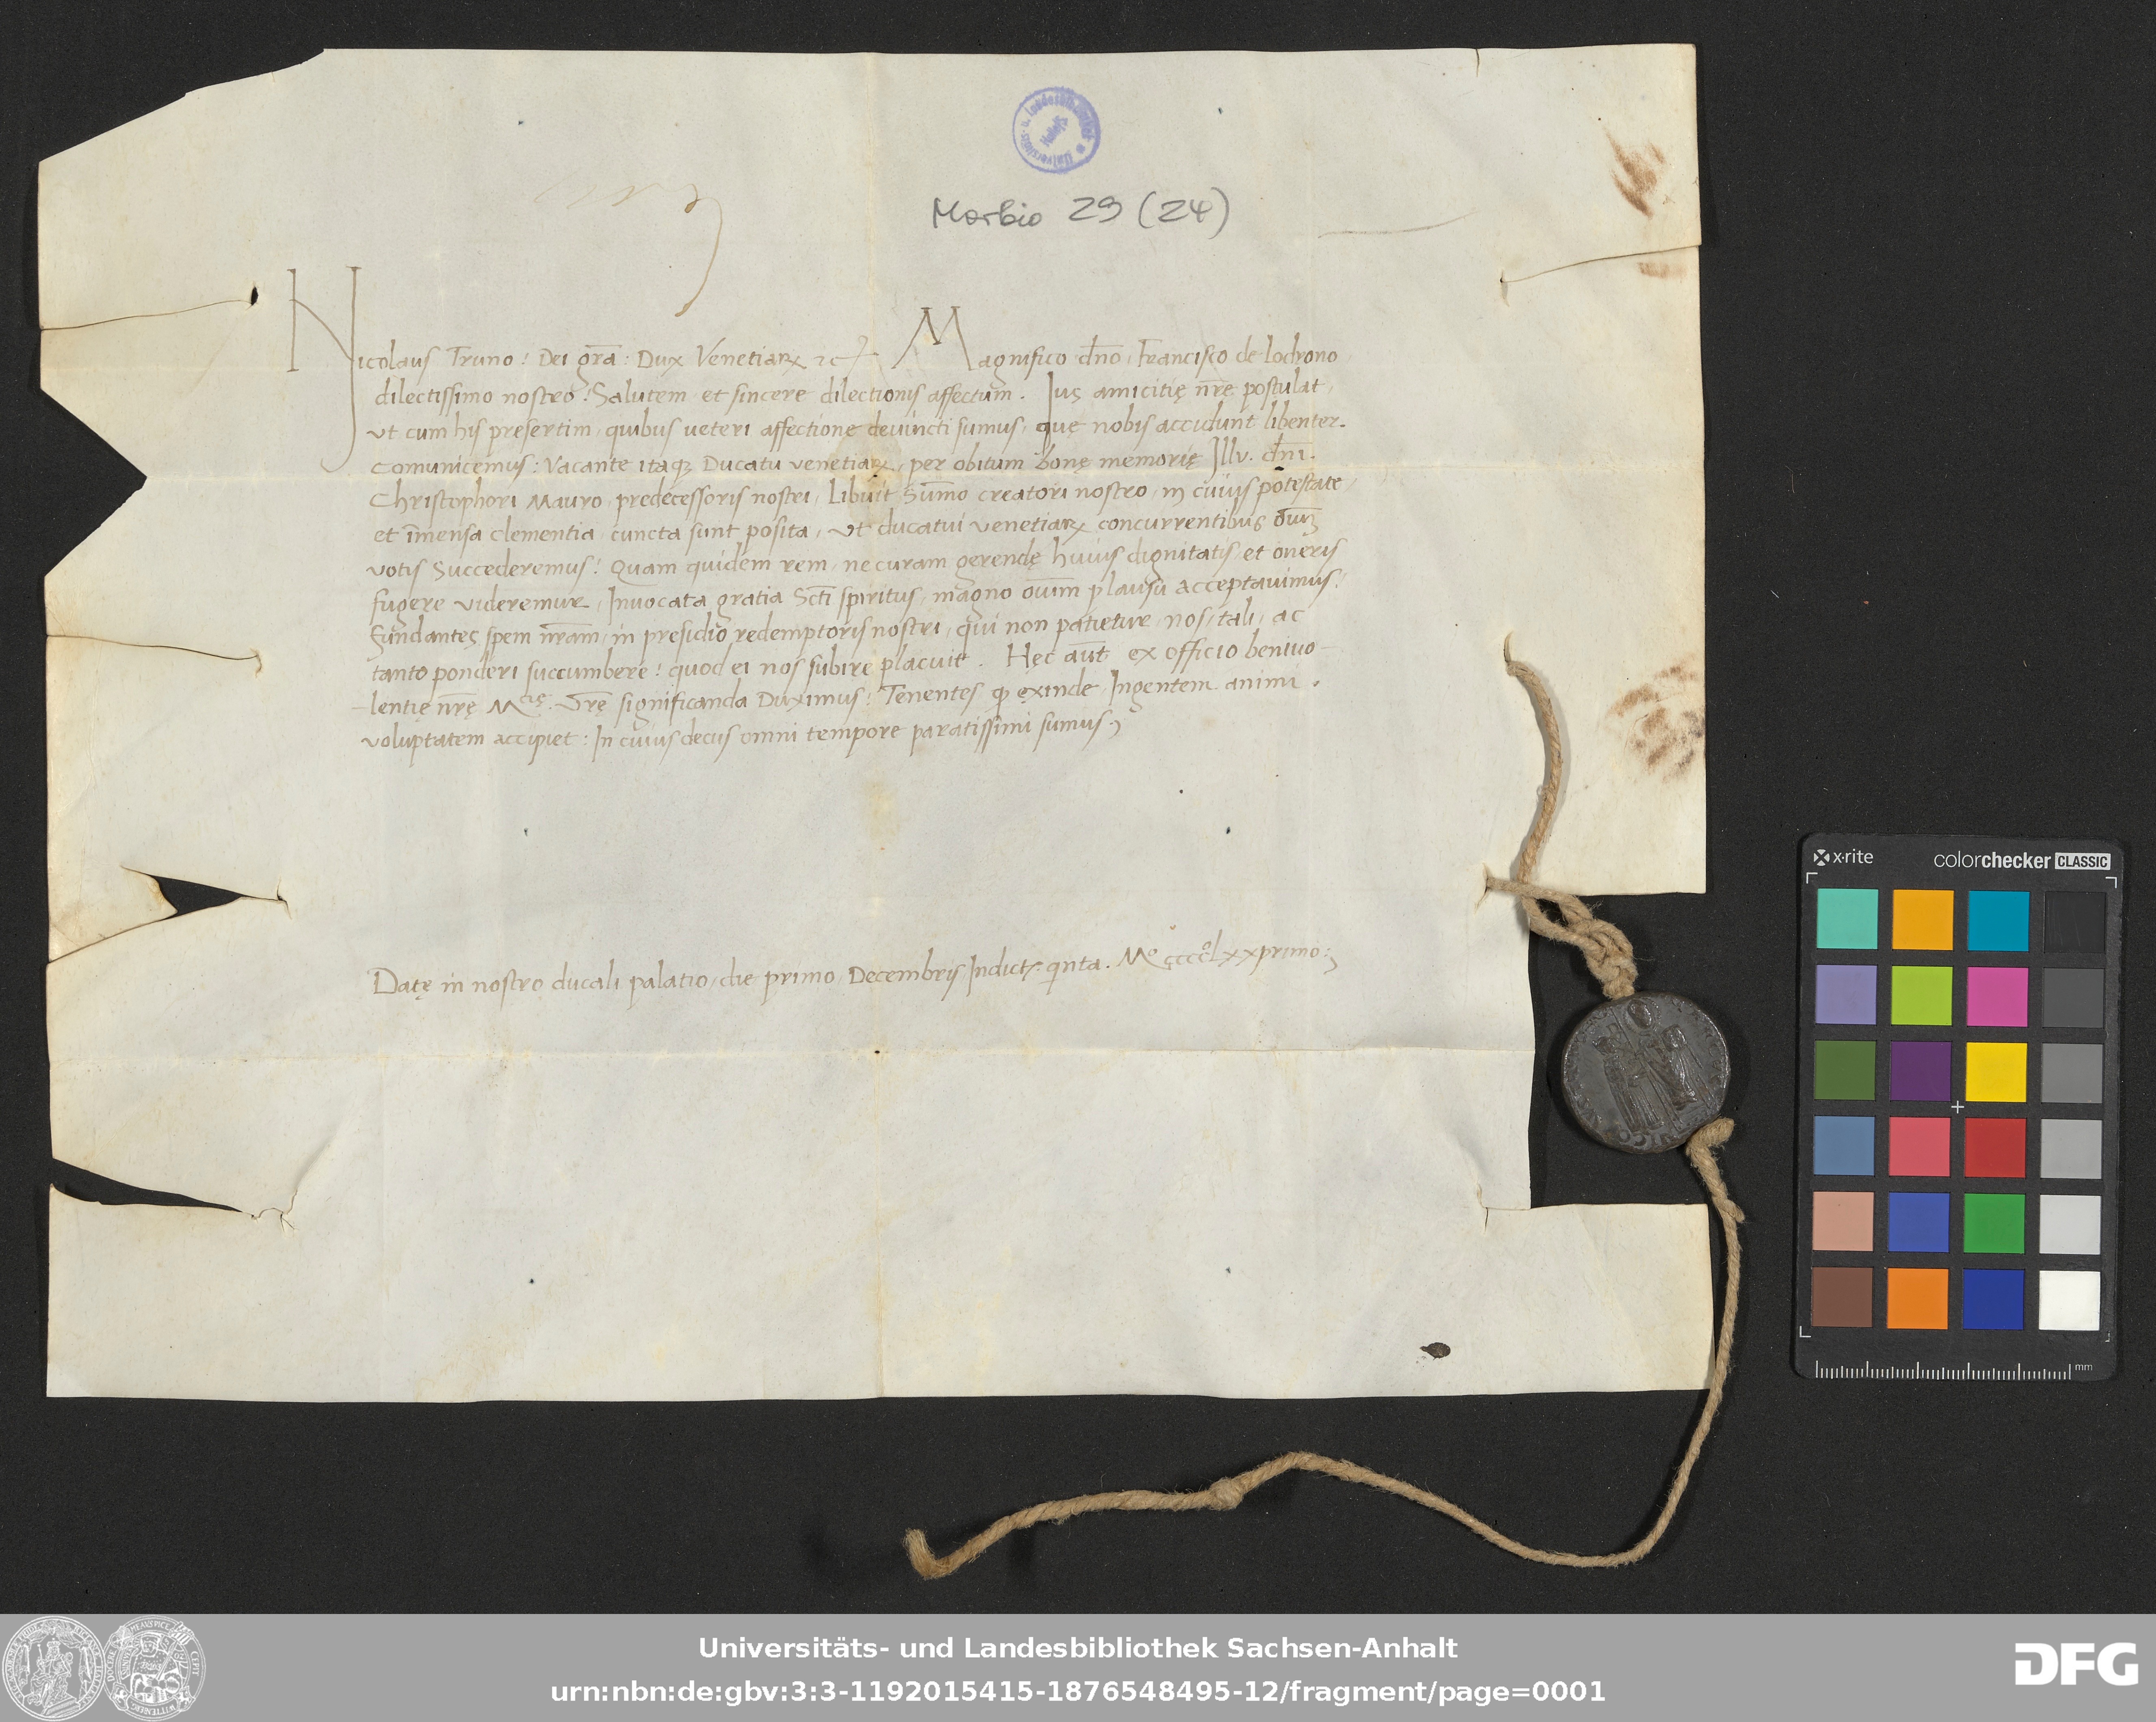 Universitäts- u. Landesbibliothek Halle/S
Morbio 29 (24)
Nicolaus Truno: Dei gr̅a: Dux Venetiaꝝ ⁊c Magnifico dn̅o Francisco de Lodrono
dilectissimo nostro: Salutem et sincere dilectionis affectum. Jus amicitię nr̅e postulat,
ut cum his presertim, quibus ueteri affectione deuincti sumus, quę nobis accidunt libenter
comunicemus: Vacante itaqꝫ Ducatu venetiaꝝ, per obitum bonę memorię Illu. dn̅i.
Christophori Mauro, predecessoris nostri, Libuit Sum̅o creatori nostro, in cuius potestate,
et im̅ensa clementia cuncta sunt posita, ut ducatui venetiaꝝ concurrentibus
votis Succederemus: Quam quidem rem, ne curam gerendę huius dignitatis, et oneris
fugere videremur, Inuocata gratia Sc̅ti spiritus, magno plausu acceptauimus:
Fundantes spem nr̅am, in presidio redemptoris nostri, qui non patietur, nos, tali, ac
tanto ponderi succumbere: quod ei nos subire placuit. Hęc aut̅ ex officio beniuo-
-lentię nr̅ę M.tię Vr̅ę significanda Duximus: Tenentes ꝙ exinde Ingentem animi
voluptatem accipiet: In cuius decus omni tempore paratissimi sumus
Datę in nostro ducali palatio, die primo Decembris Indict. qinta. Mº ccccºlxxprimo:
x·rite colorchecker CLASSIC
mm
Universitäts- und Landesbibliothek Sachsen-Anhalt
urn:nbn:de:gbv:3:3-1192015415-1876548495-12/fragment/page=0001
DFG